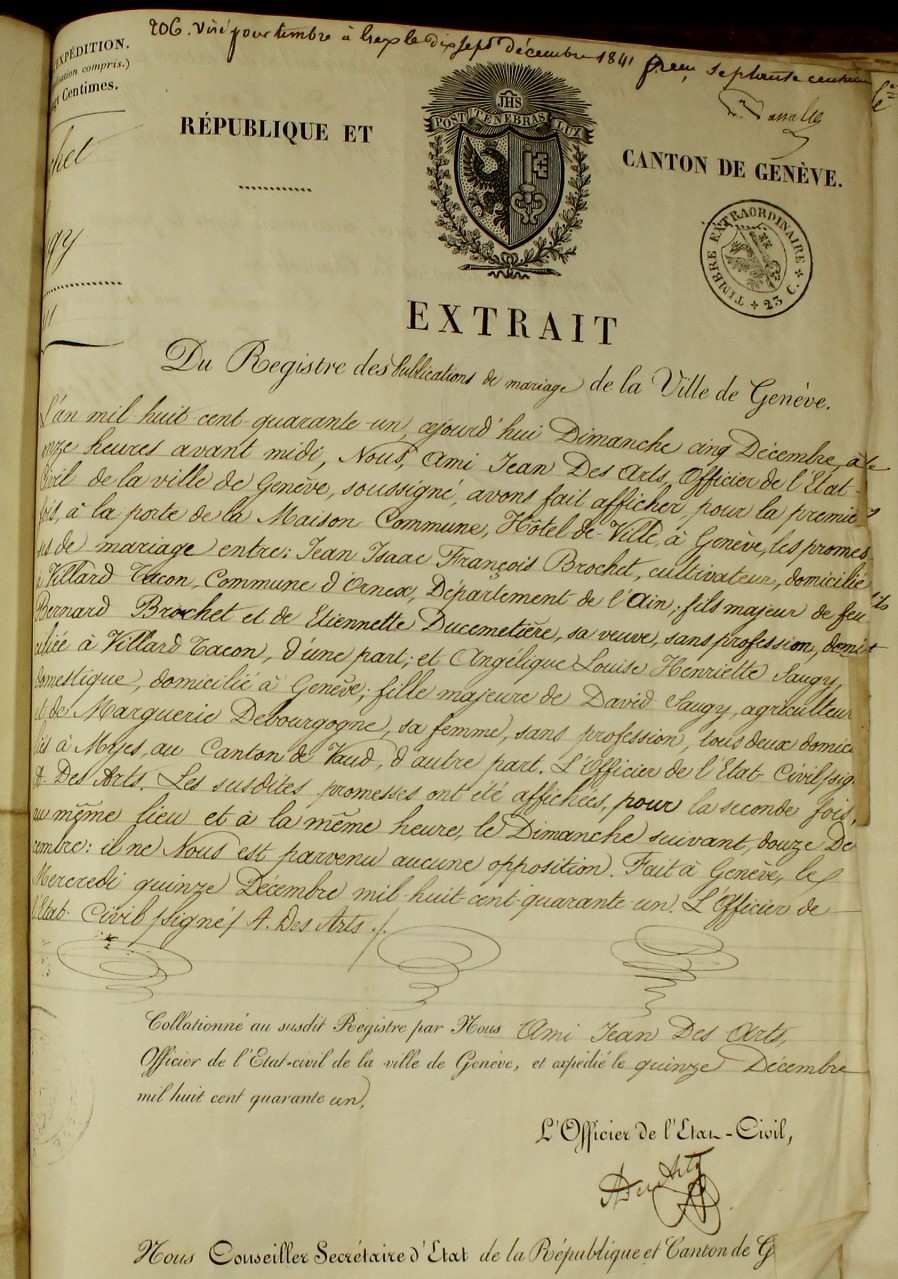 206. Visé pour timbre à Gex le dix sept décembre 1841
septante centimes
EXPÉDITION.
compris.)
Centimes.
chet
gy
JHS
POST TENEBRAS LUX
RÉPUBLIQUE ET
CANTON DE GENÈVE.
TIMBRE EXTRAORDINAIRE
23 C.
EXTRAIT
Du Registre des Publications de mariage de la Ville de Genève.
L'an mil huit cent quarante un, cejourd'hui Dimanche cinq Décembre, à
onze heures avant midi, Nous, Ami Jean Des Arts, Officier de l'Etat-
Civil de la ville de Genève, soussigné, avons fait afficher, pour la premiè
fois, à la porte de la Maison Commune, Hôtel-de-Ville, à Genève, les promes
ses de mariage entre: Jean Isaac François Brochet, cultivateur, domicilié
à Villard Tacon, Commune d'Ornex, Département de l'Ain; fils majeur de feu
Bernard Brochet et de Etiennette Ducemetière, sa veuve, sans profession, domi
ciliée à Villard Tacon, d'une part; et Angélique Louise Henriette Saugy,
domestique, domicilié à Genève; fille majeure de David Saugy, agriculteur
et de Marguerie Debourgogne, sa femme, sans profession, tous deux domici
liés à Myes, au Canton de Vaud, d'autre part. L'Officier de l'Etat Civil, sig
A. Des Arts. Les susdites promesses ont été affichées, pour la seconde fois,
au même lieu et à la même heure, le Dimanche suivant, douze Dé
cembre: il ne Nous est parvenu aucune opposition. Fait à Genève, le
Mercredi quinze Décembre mil huit cent quarante un. L'Officier de
l'Etat Civil /signé/ A. Des Arts ./.
Collationné au susdit Registre par Nous Ami Jean Des Arts,
Officier de l'Etat-civil de la ville de Genève, et expédié le quinze Décembre
mil huit cent quarante un.
L'Officier de l'Etat-Civil,
A Des Arts
Nous Conseiller Secrétaire d'Etat de la République et Canton de G